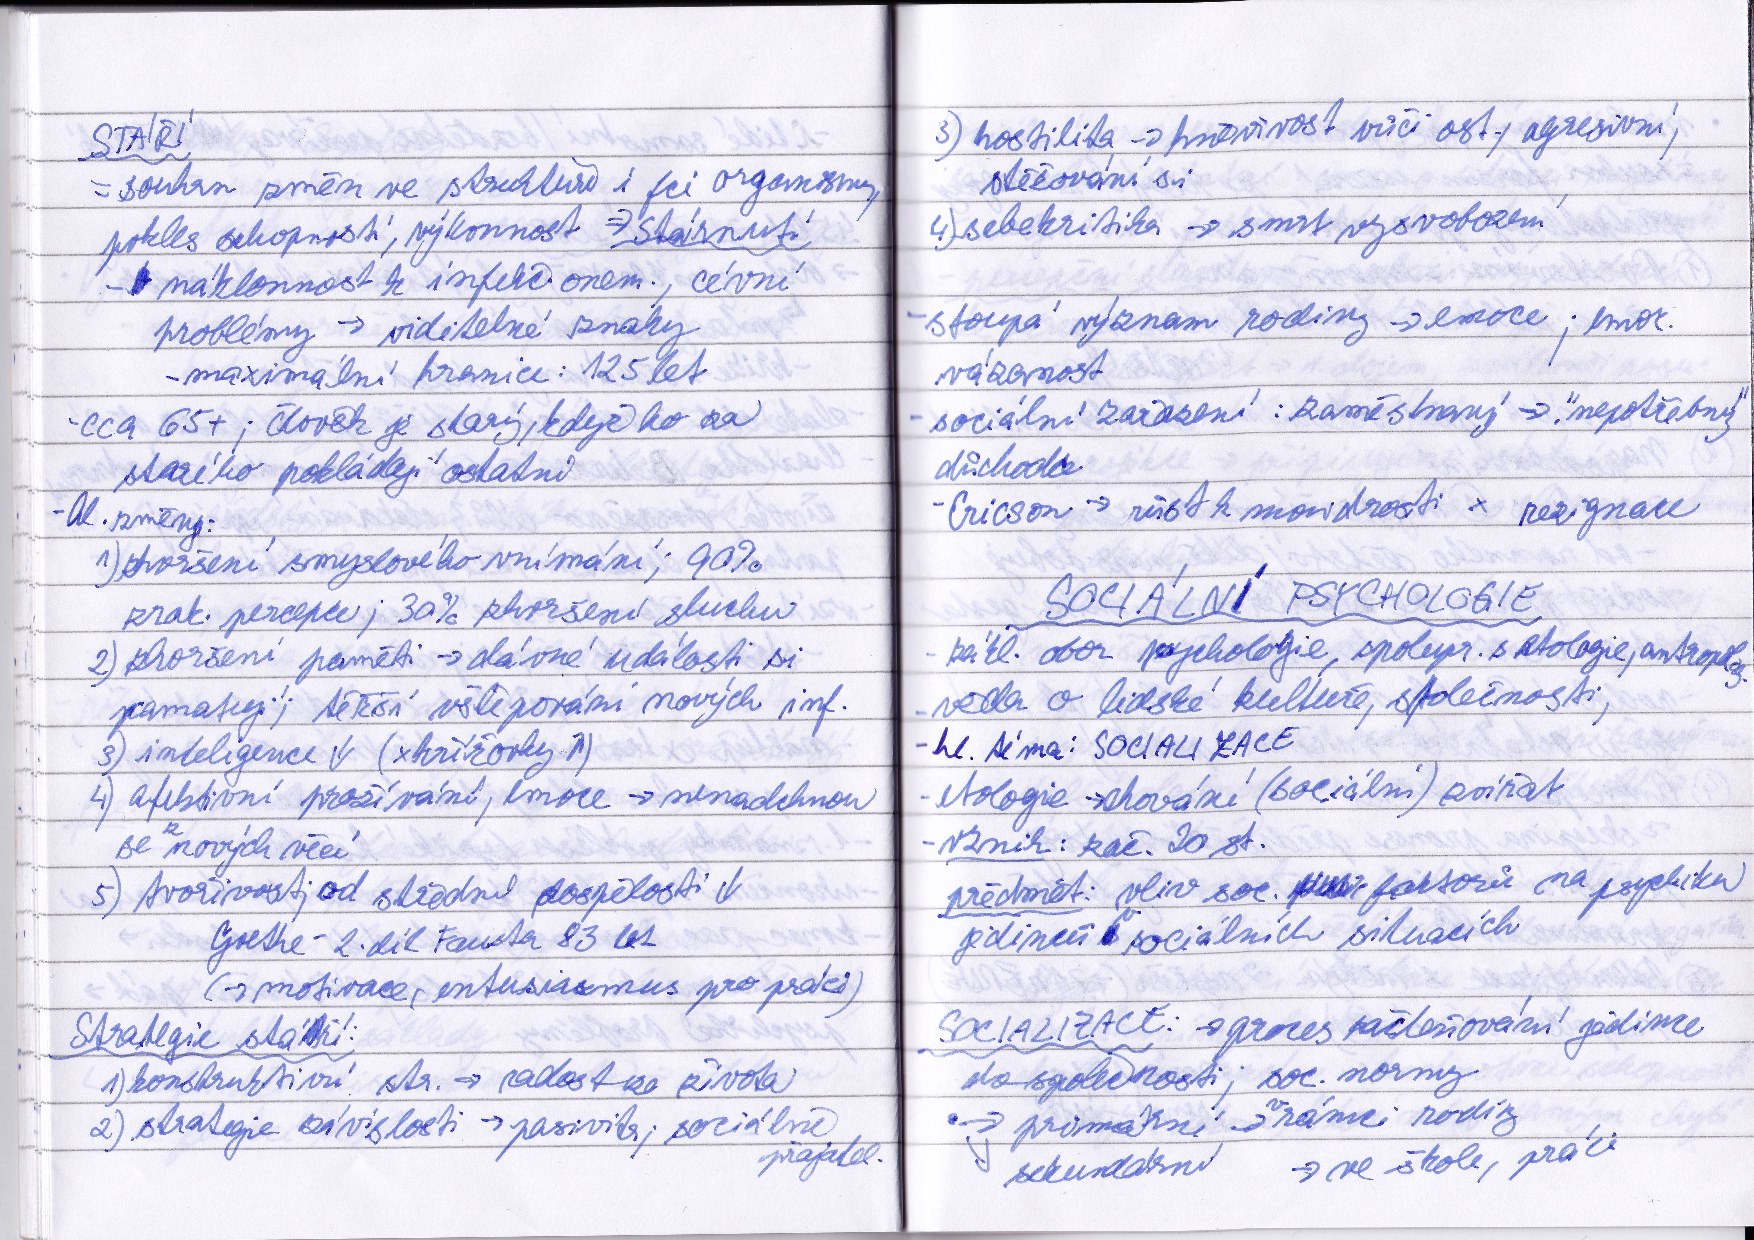 STÁŘÍ
= souhrn změn ve struktuře i fci organismu,
pokles schopností, výkonnost => Stárnutí
- náklonnost k infekč. onem., cévní
problémy → viditelné znaky
- maximální hranice: 125 let
- cca 65+; člověk je starý, když ho za
starého pokládají ostatní
- hl. změny:
1) zhoršení smyslového vnímání; 90%
zrak. percepce; 30% zhoršení sluchu
2) zhoršení paměti → dávné události si
pamatují; těžší vštěpování nových inf.
3) inteligence ↓ (x křížovky ↑)
4) afektivní prožívání, emoce → nenadchnou
se z nových věcí
5) tvořivost; od střední dospělosti ↓
Goethe - 2. díl Fausta 83 let
(→ motivace, entusiazmus pro práci)
Strategie stáří:
1) konstruktivní str. → radost ze života
2) strategie závislosti → pasivita; sociálně
přijatel.
3) hostilita → hněvivost vůči ost., agresivní,
stěžování si
4) sebekritika → smrt vysvobození
- stoupá význam rodiny → emoce; emoc.
vázanost
- sociální zařazení: zaměstnaný → "nepotřebný"
důchodce
- Ericson → růst k moudrosti x rezignace
SOCIÁLNÍ PSYCHOLOGIE
- zákl. obor psychologie, spolupr. s etologie, antropolog.
- věda o lidské kultuře, společnosti,
- hl. téma: SOCIALIZACE
- etologie → chování (sociální) zvířat
- vznik: zač. 20 st.
předmět: vliv soc. faktorů na psychiku
jedinců v sociálních situacích
SOCIALIZACE: → proces začleňování jedince
do společnosti; soc. normy
→ primární → v rámci rodiny
sekundární → ve škole, práci